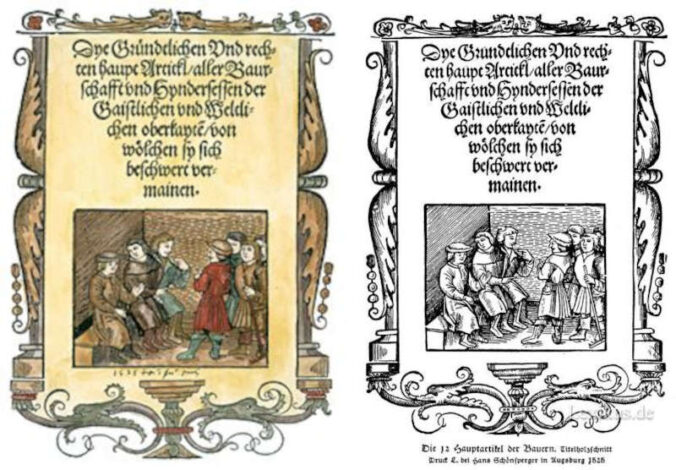 Dye Gründtlichen Vnd rech-
ten haupt Artickl/aller Baur-
schafft vnd Hyndersessen der
Gaistlichen vnd Weldli-
chen oberkaytē/von
wölchen sy sich
beschwert ver-
mainen.
1525
Dye Gründtlichen Vnd rech-
ten haupt Artickl/aller Baur-
schafft vnd Hyndersessen der
Gaistlichen vnd Weldli-
chen oberkaytē/von
wölchen sy sich
beschwert ver-
mainen.
Die 12 Hauptartikel der Bauern. Titelholzschnitt
Druck L. bei Hans Schönsperger in Augsburg 1525